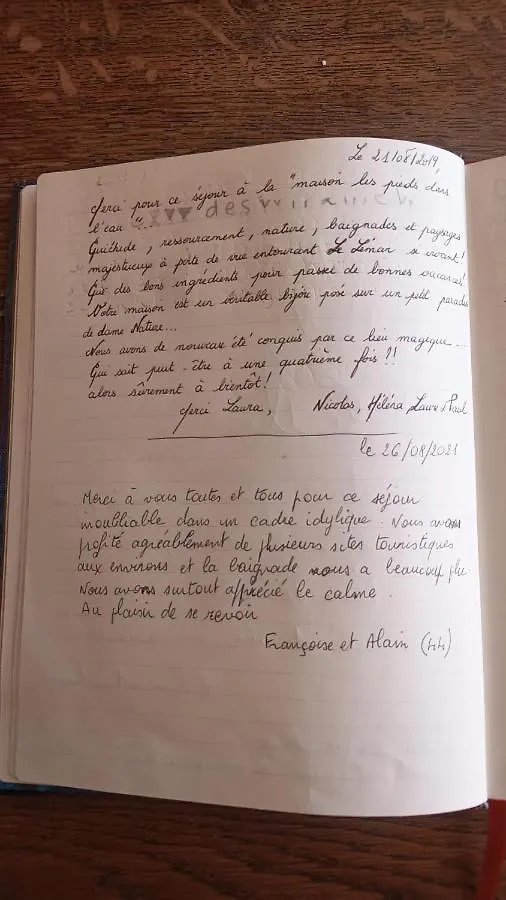 Le 21/08/2019
Merci pour ce séjour à la "maison les pieds dans
l'eau".
Quiétude, ressourcement, nature, baignades et paysages
majestueux à perte de vue entourant Le Léman
Que des bons ingrédients pour passer de bonnes vacances!
Votre maison est un véritable bijou posé sur un petit paradis
de dame Nature...
Nous avons de nouveau été conquis par ce lieu magique...
Qui sait peut-être à une quatrième fois !!
alors sûrement à bientôt!
Merci Laura, Nicolas, Héléna, Laure
le 26/08/2021
Merci à vous toutes et tous pour ce séjour
inoubliable dans un cadre idylique. Nous avons
profité agréablement de plusieurs sites touristiques
aux environs et la baignade nous a beaucoup plu
Nous avons surtout apprécié le calme.
Au plaisir de se revoir
Françoise et Alain (44)